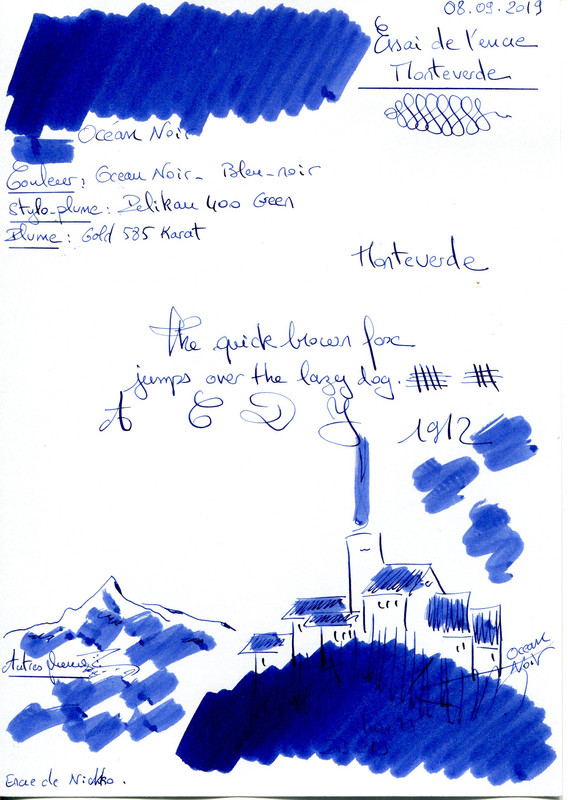 08.09.2019
Essai de l'encre
Monteverde
Océan Noir
Couleur : Ocean Noir - Bleu-noir
Stylo-plume : Pelikan 400 Green
Plume : Gold 585 Karat
Monteverde
The quick brown fox
jumps over the lazy dog.
A C D Y 1912
Ocean
Noir
Autres
de Nickko.